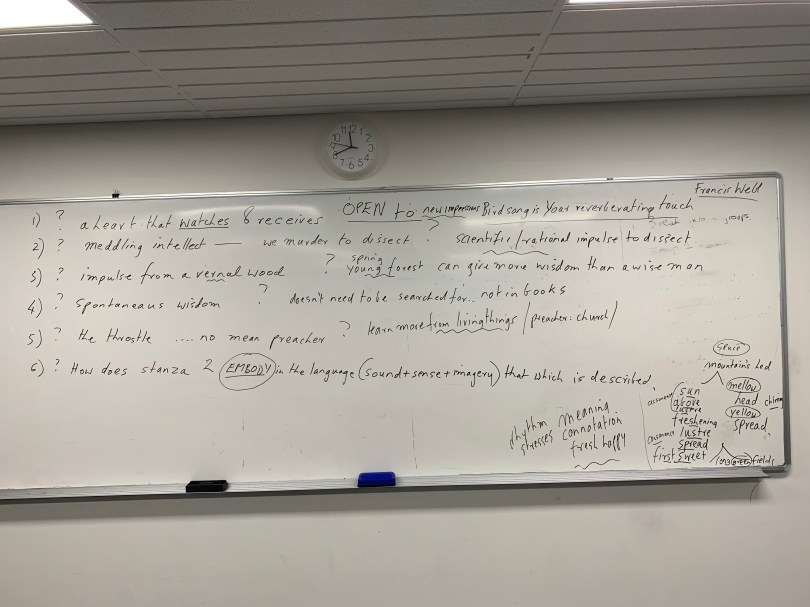 Francis Well
1) ? a heart that watches & receives OPEN to new impressions Birdsong is Your reverberating touch
2) ? meddling intellect — we murder to dissect ? scientific/rational impulse to dissect
3) ? impulse from a vernal wood ? spring young forest can give more wisdom than a wise man
4) ? spontaneous wisdom ? doesn't need to be searched for... not in books
5) ? the throstle .... no mean preacher ? learn more from living things / preacher: church /
6) ? How does stanza 2 EMBODY in the language (sound+sense+imagery) that which is described.
rhythm meaning
stresses connotation
fresh happy
mountain's hed
sun mellow
above head
yellow
freshening spread
lustre
spread
first sweet long green fields
12 1 2 3 4 5 6 7 8 9 10 11